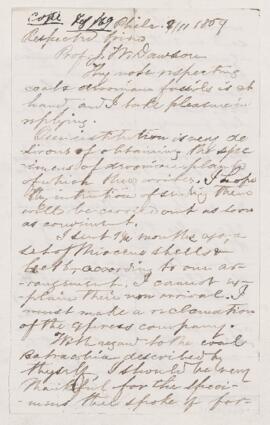 Copy Phila. 9/11 1869
Respected friend
Prof. J. W. Dawson
Thy note respecting
coal & devonian fossils is at
hand, and I take pleasure in
replying.
Our institution is very de
sirous of obtaining the spec
imens of devonian plants
of which thee writes. I hope
thy intention of sending them
will be carried out as soon
as convenient.
I sent months ago, a
set of Miocene shells &
according to our ar-
rangement. I cannot ex-
plain their non arrival. I
must make a reclamation
of the express company.
With regard to the coal
batrachia described by
thyself I should be very
thankful for the speci-
mens thee spoke of for-